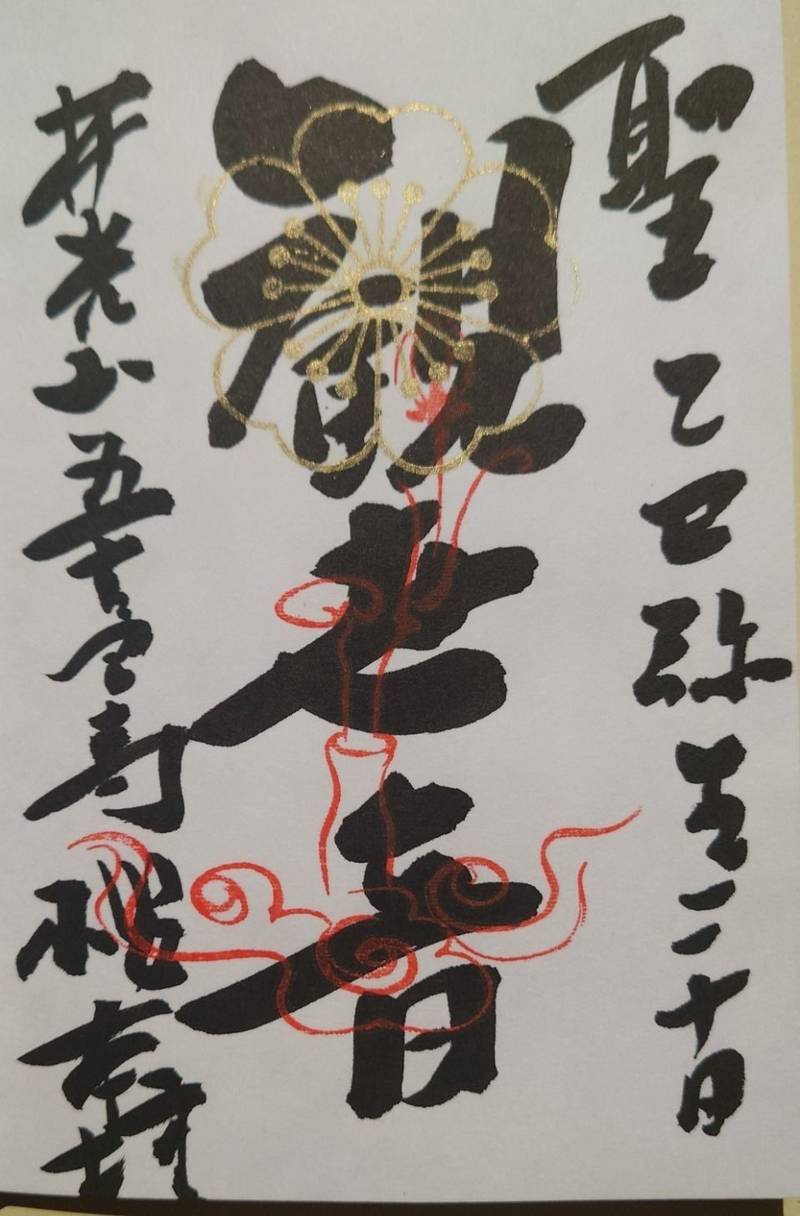 聖 乙巳弥生二十日
観世音
井光山五臺寺 櫻本坊